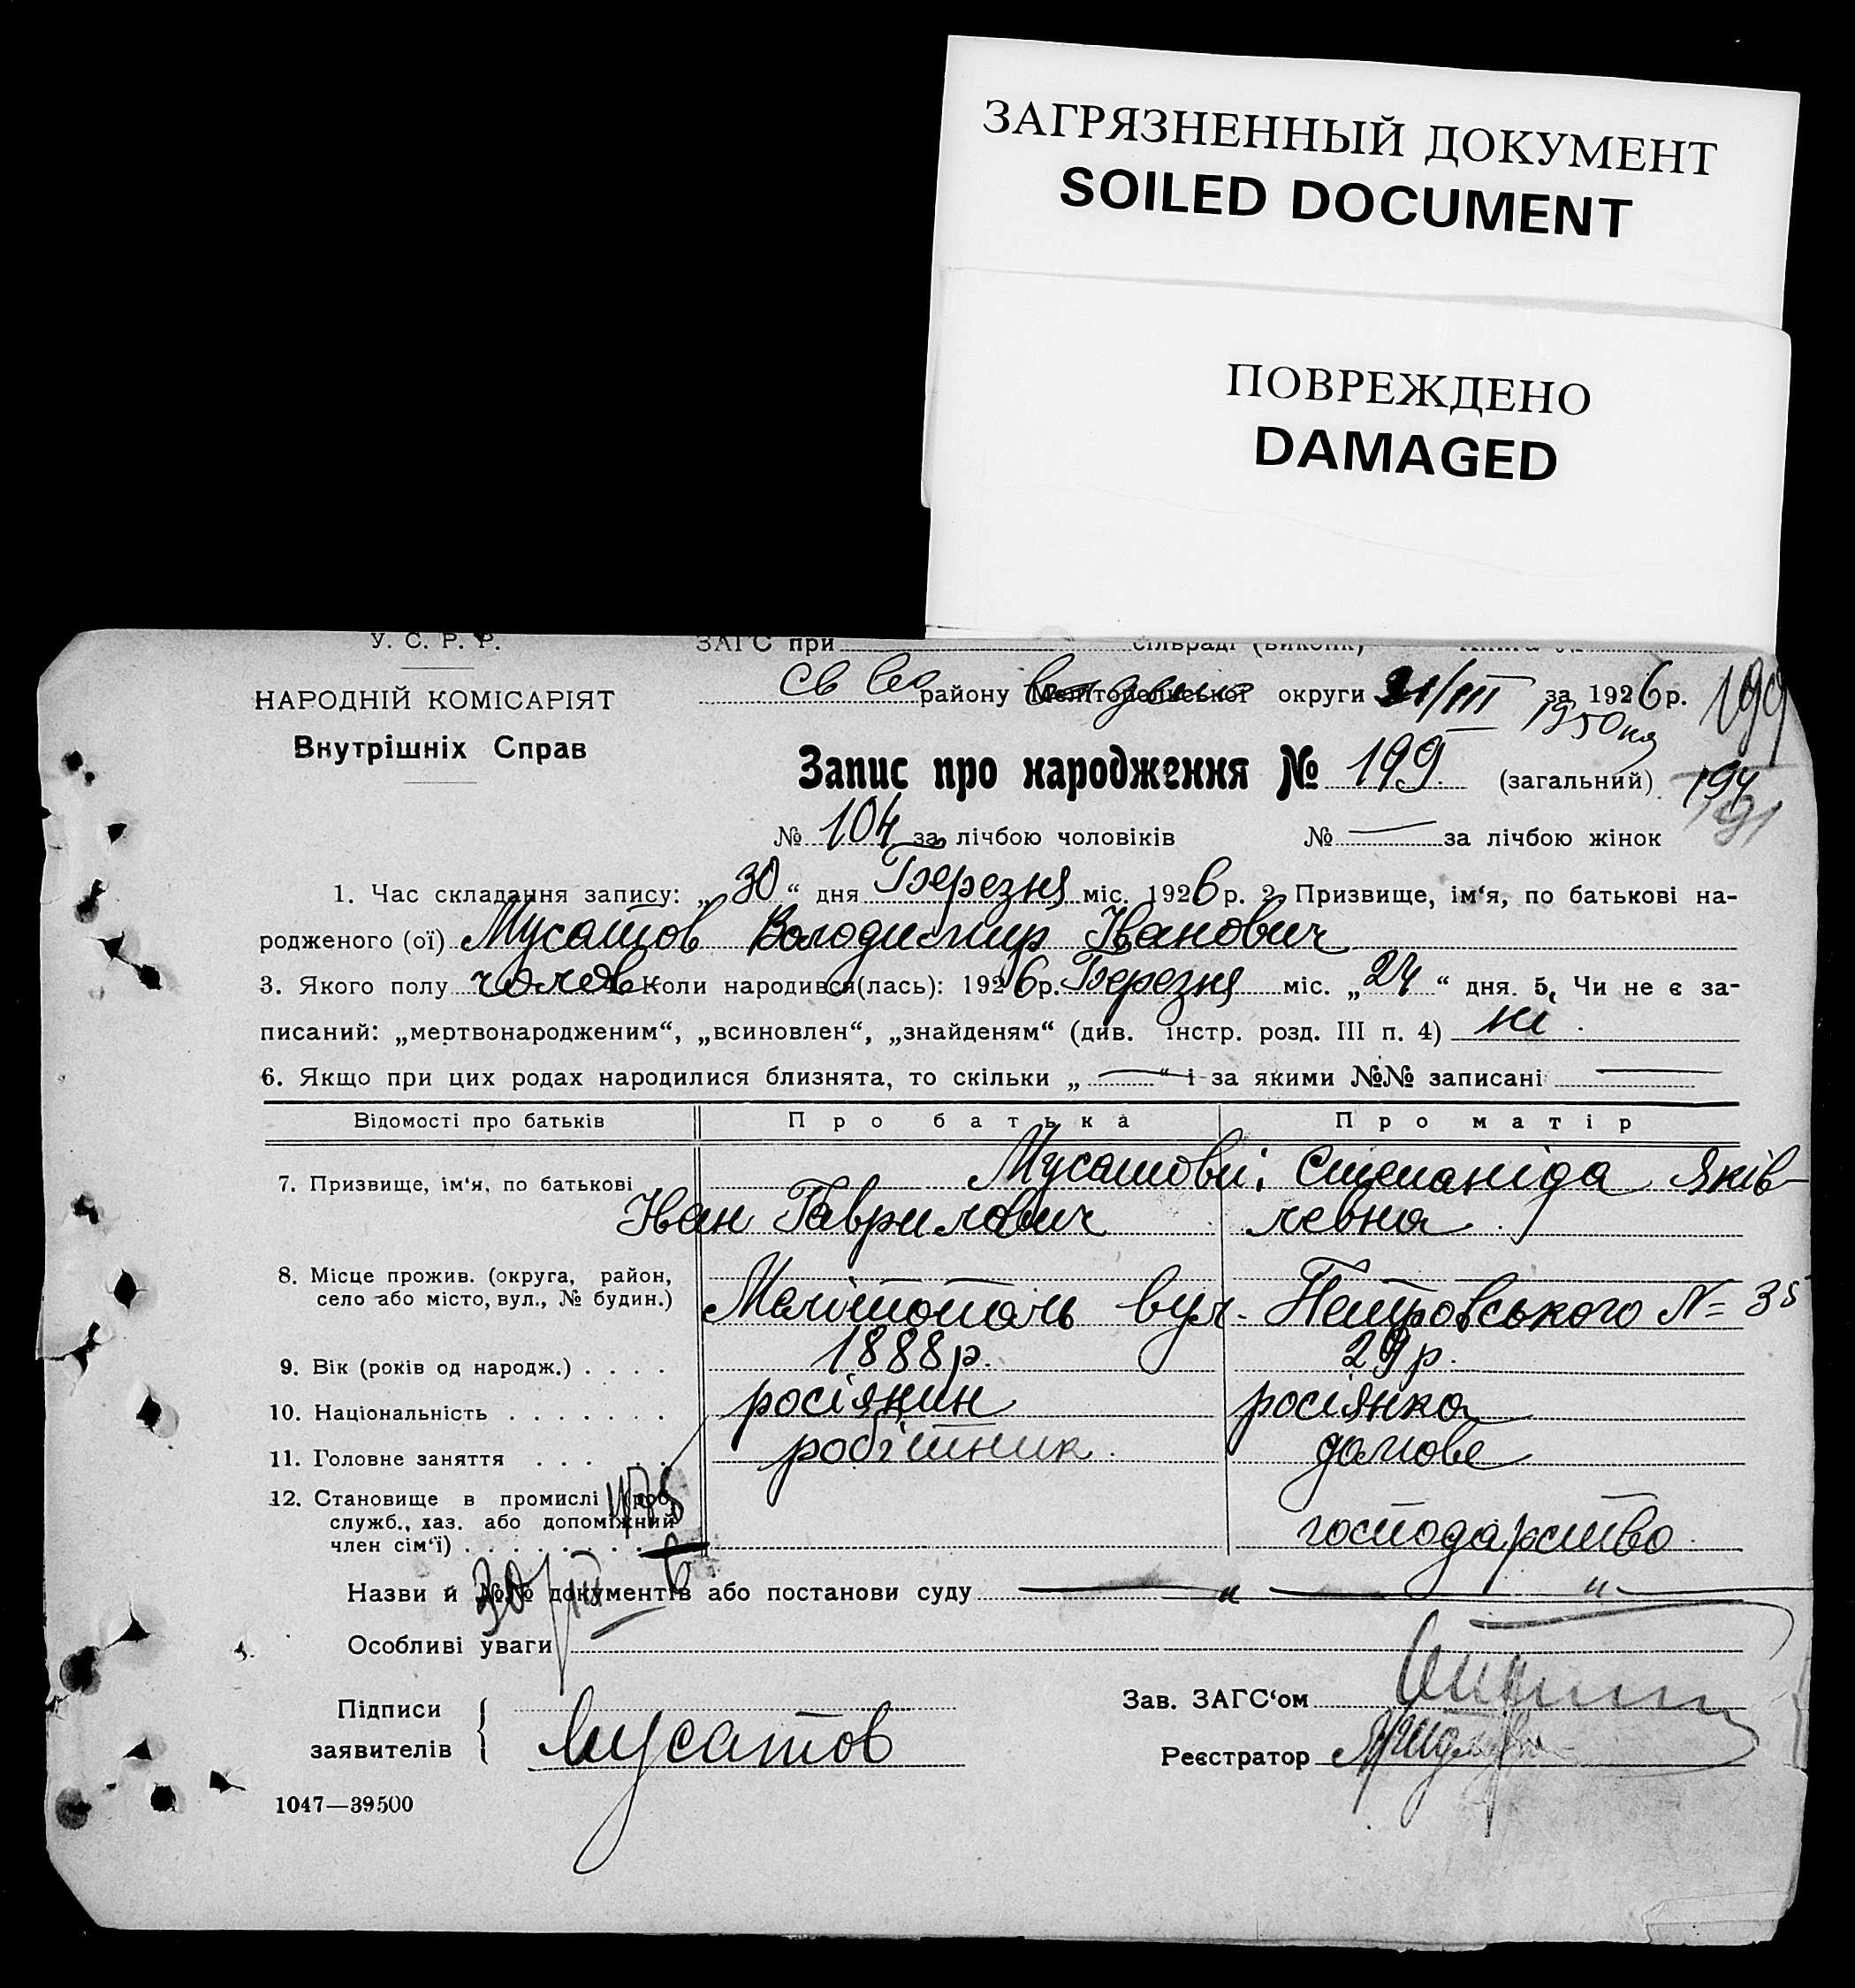 ЗАГРЯЗНЕННЫЙ ДОКУМЕНТ
SOILED DOCUMENT
ПОВРЕЖДЕНО
DAMAGED
У. С. Р. Р. ЗАГС при
НАРОДНІЙ КОМІСАРІЯТ
Внутрішніх Справ
району Мелітопольської округи 31/III за 1926 р. 199
Запис про народження № 199 (загальний) 194
191
№ 104 за лічбою чоловіків № — за лічбою жінок
1. Час складання запису: „30“ дня Березня міс. 1926 р. 2. Призвище, ім‘я, по батькові на-
родженого (ої) Мусатов Володимир Іванович
3. Якого полу чолов Коли народився(лась): 1926 р. Березня міс. „24“ дня. 5. Чи не є за-
писаний: „мертвонародженим“, „всиновлен“, „знайденям“ (див. інстр. розд. III п. 4) ні.
6. Якщо при цих родах народилися близнята, то скільки „—“ і за якими №№ записані —
Відомості про батьків Про батька Про матір
7. Призвище, ім‘я, по батькові Мусатови: Степаніда Яків-
Іван Гаврилович левна.
8. Місце прожив. (округа, район,
село або місто, вул., № будин.) Мелітополь вул. Петровського № 35
9. Вік (років од народж.) . . . . 1888 р. 29 р.
10. Національність . . . . . . . росіянин росіянка
11. Головне заняття . . . . . робітник. домове
12. Становище в промислі (роб.,
служб., хаз. або допоміжний
член сім‘ї) . . . . . . . . господарство.
Назви й №№ документів або постанови суду — „ — „ —
30/III
Особливі уваги
Підписи
заявителів Мусатов
Зав. ЗАГС‘ом
Реєстратор
1047—39500